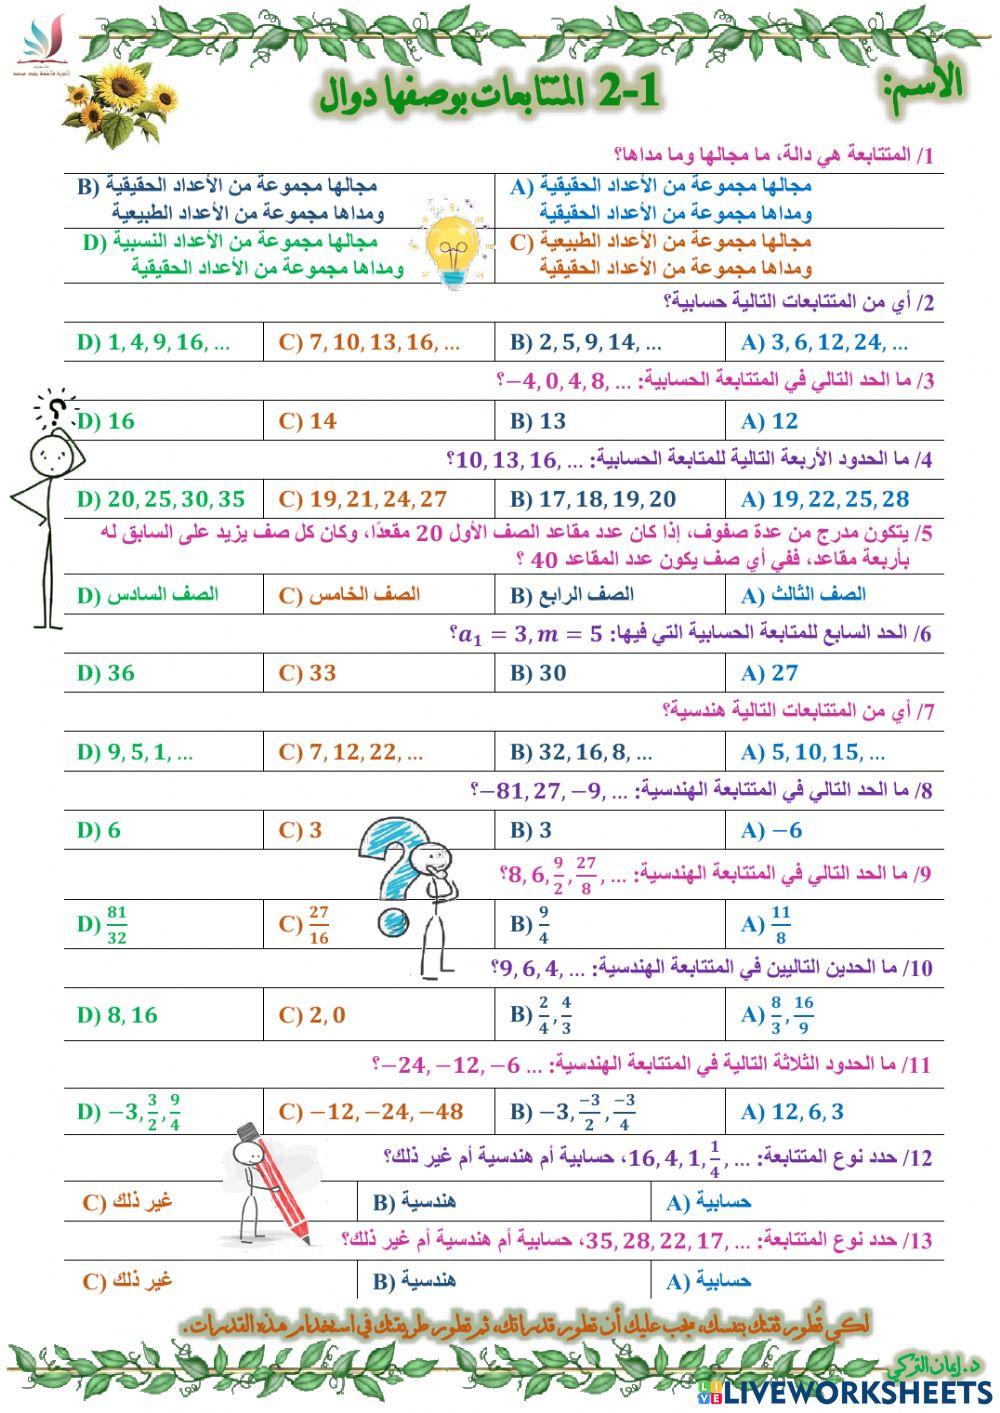 الاسم:
2-1 المتتابعات بوصفها دوال
1/ المتتابعة هي دالة، ما مجالها وما مداها؟
A) مجالها مجموعة من الأعداد الحقيقية
ومداها مجموعة من الأعداد الحقيقية
B) مجالها مجموعة من الأعداد الحقيقية
ومداها مجموعة من الأعداد الطبيعية
C) مجالها مجموعة من الأعداد الطبيعية
ومداها مجموعة من الأعداد الحقيقية
D) مجالها مجموعة من الأعداد النسبية
ومداها مجموعة من الأعداد الحقيقية
2/ أي من المتتابعات التالية حسابية؟
A) 3, 6, 12, 24, ...
B) 2, 5, 9, 14, ...
C) 7, 10, 13, 16, ...
D) 1, 4, 9, 16, ...
3/ ما الحد التالي في المتتابعة الحسابية: −4, 0, 4, 8, ...؟
A) 12
B) 13
C) 14
D) 16
4/ ما الحدود الأربعة التالية للمتابعة الحسابية: 10, 13, 16, ...؟
A) 19, 22, 25, 28
B) 17, 18, 19, 20
C) 19, 21, 24, 27
D) 20, 25, 30, 35
5/ يتكون مدرج من عدة صفوف، إذا كان عدد مقاعد الصف الأول 20 مقعدًا، وكان كل صف يزيد على السابق له
بأربعة مقاعد، ففي أي صف يكون عدد المقاعد 40 ؟
A) الصف الثالث
B) الصف الرابع
C) الصف الخامس
D) الصف السادس
6/ الحد السابع للمتابعة الحسابية التي فيها: a₁ = 3, m = 5؟
A) 27
B) 30
C) 33
D) 36
7/ أي من المتتابعات التالية هندسية؟
A) 5, 10, 15, ...
B) 32, 16, 8, ...
C) 7, 12, 22, ...
D) 9, 5, 1, ...
8/ ما الحد التالي في المتتابعة الهندسية: −81, 27, −9, ...؟
A) −6
B) 3
C) 3
D) 6
9/ ما الحد التالي في المتتابعة الهندسية: 8, 6, 9/2, 27/8, ...؟
A) 11/8
B) 9/4
C) 27/16
D) 81/32
10/ ما الحدين التاليين في المتتابعة الهندسية: 9, 6, 4, ...؟
A) 8/3, 16/9
B) 2/4, 4/3
C) 2, 0
D) 8, 16
11/ ما الحدود الثلاثة التالية في المتتابعة الهندسية: −24, −12, −6 ...؟
A) 12, 6, 3
B) −3, −3/2, −3/4
C) −12, −24, −48
D) −3, 3/2, 9/4
12/ حدد نوع المتتابعة: 16, 4, 1, 1/4, ...، حسابية أم هندسية أم غير ذلك؟
A) حسابية
B) هندسية
C) غير ذلك
13/ حدد نوع المتتابعة: 35, 28, 22, 17, ...، حسابية أم هندسية أم غير ذلك؟
A) حسابية
B) هندسية
C) غير ذلك
لكي تُطور ثقتك بنفسك، يجب عليك أن تطور قدراتك، ثم تطور طريقتك في استخدام هذه القدرات.
د. إيمان التركي
LIVEWORKSHEETS